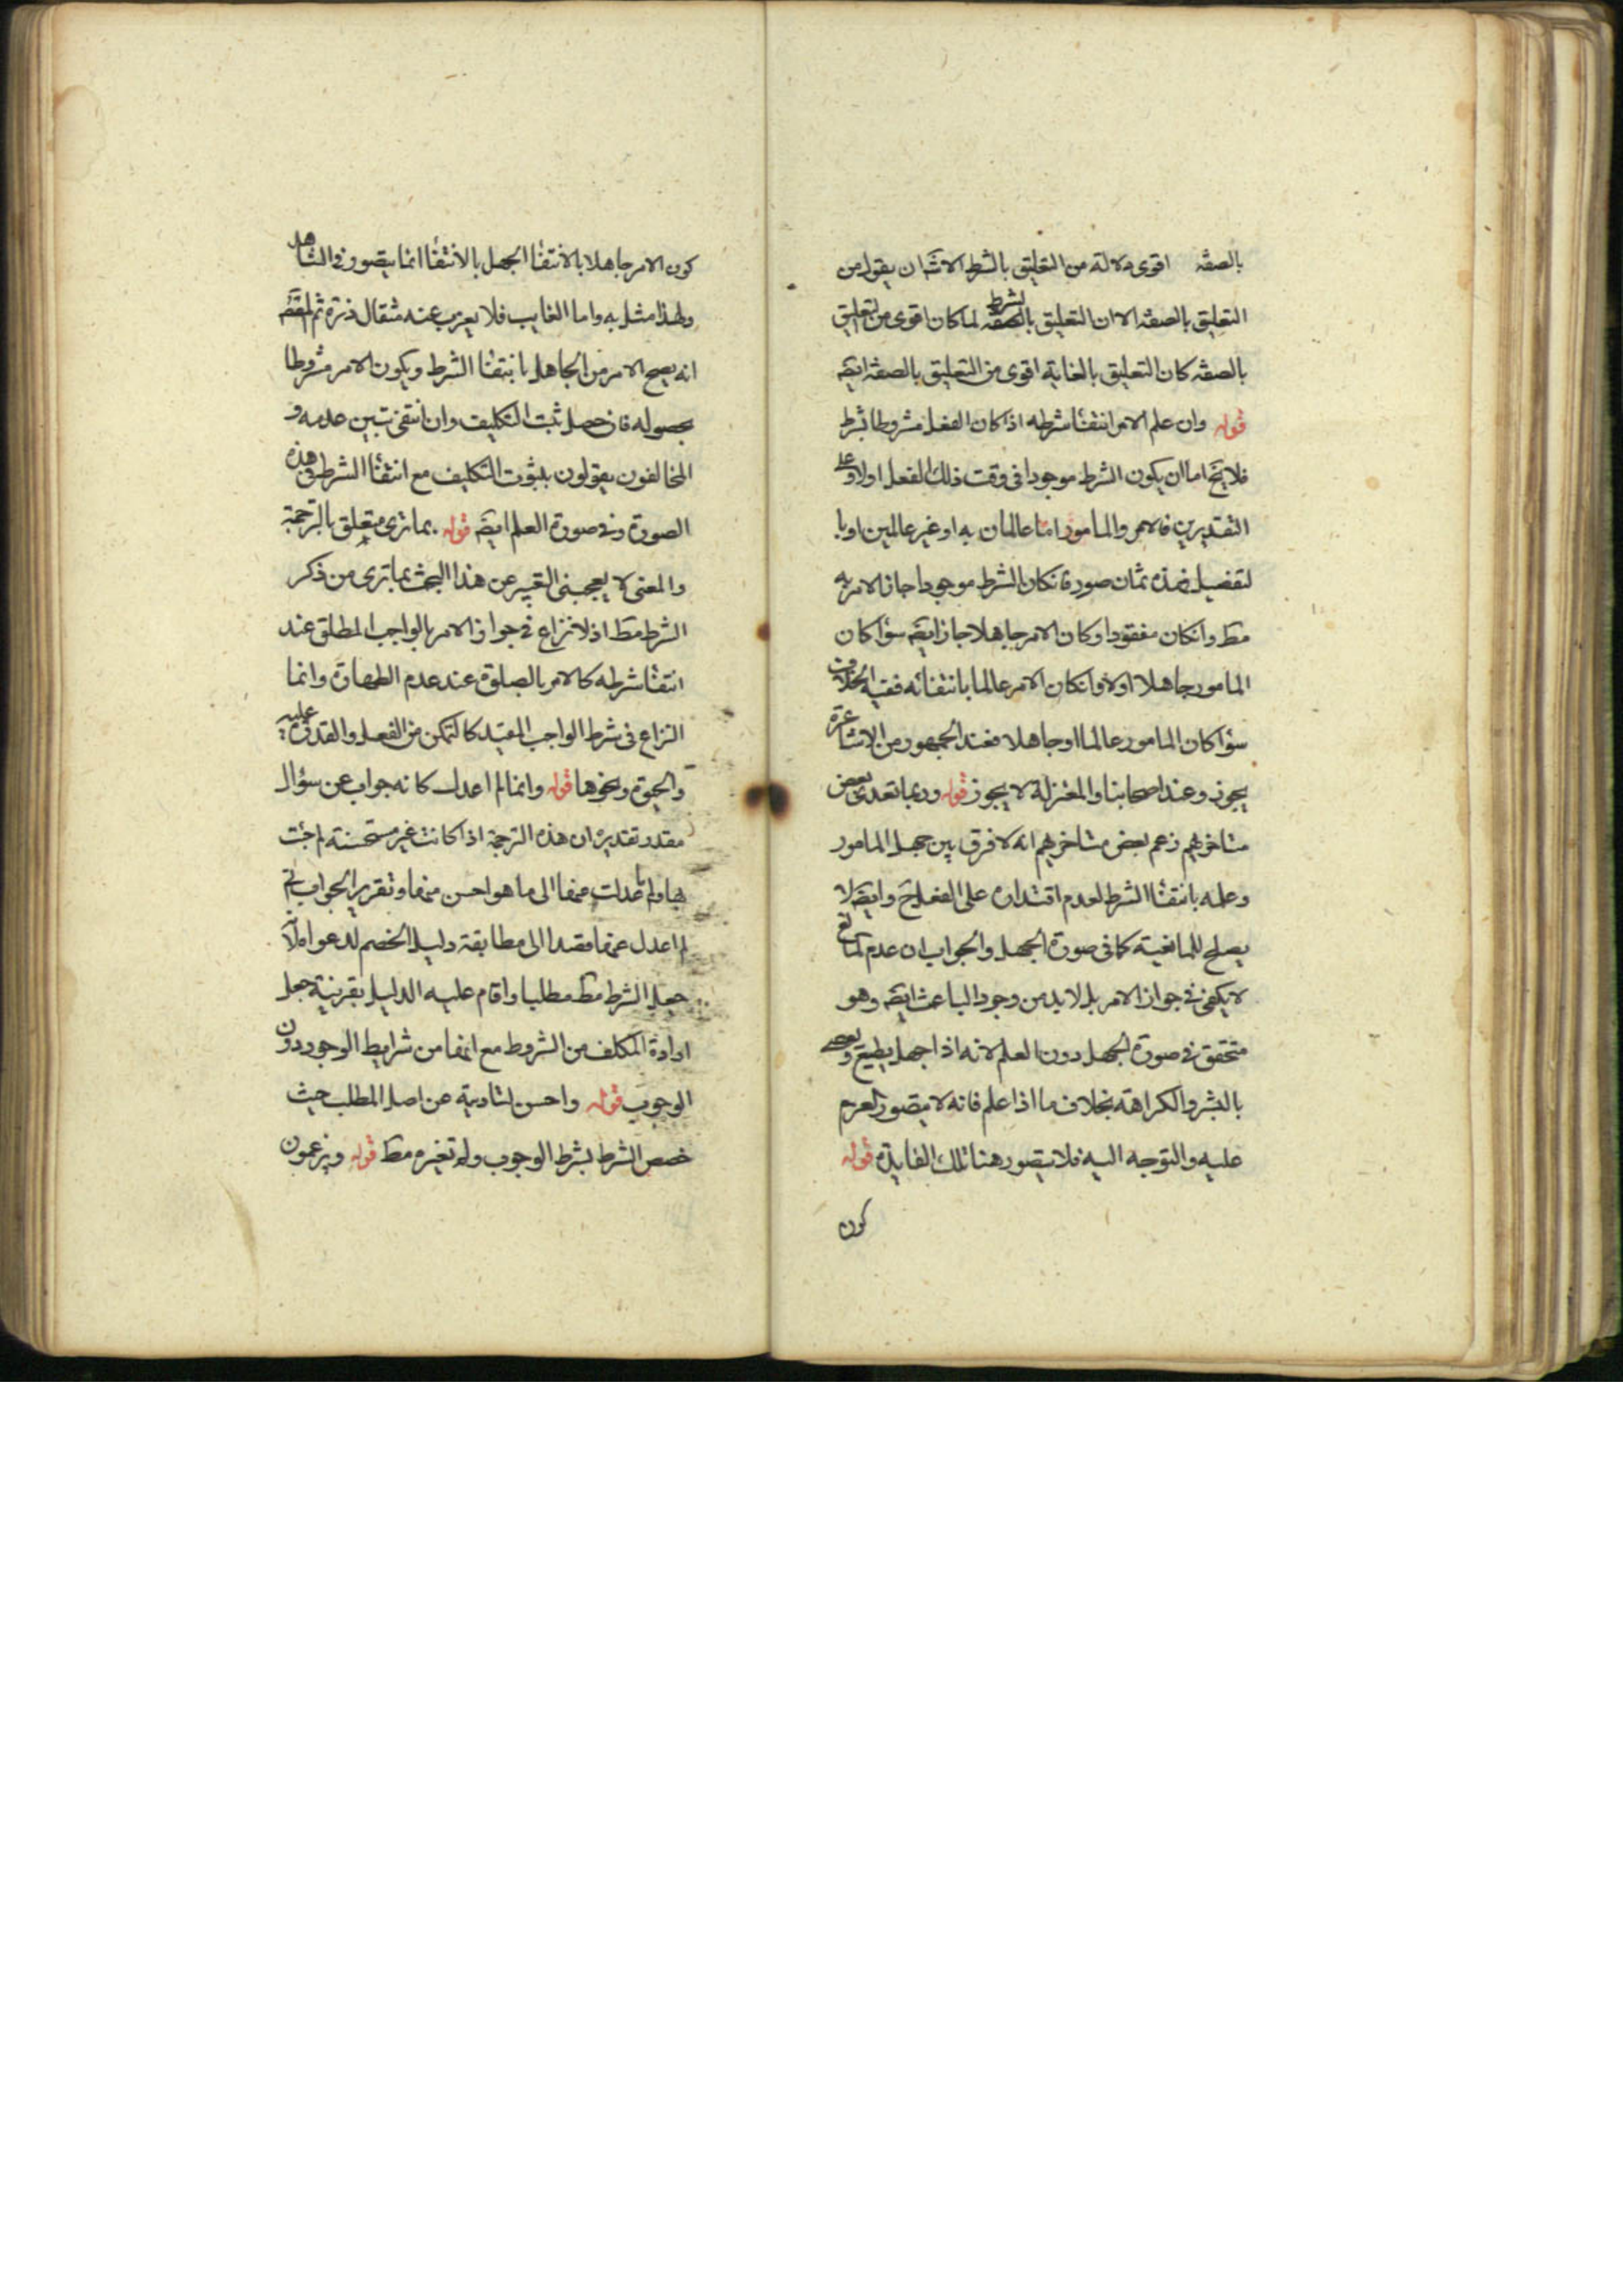 بالصفة اقوى دلالة من التعليق بالشرط الا ان يقول من
التعليق بالصفة الا ان التعليق بالشرط لما كان اقوى من التعليق
بالصفة كان التعليق بالغاية اقوى من التعليق بالصفة ايضَ
قوله وان علم الامر انتفٰا شرطه اذا كان الفعل مشروطا بشرط
فلا يخ اما ان يكون الشرط موجودا فى وقت ذلك الفعل اولا وعلى
التقديرين فالامر والمامور اما عالمان به او غير عالمين او با
لتفصيل فهذه ثمان صور فانكان الشرط موجودا جاز الامر به
مط وانكان مفقودا وكان الامر جاهلا جاز ايضَ سوٰا كان
المامور جاهلا اولا وانكان الامر عالما بانتفائه ففيه الخلاف
سوٰا كان المامور عالما او جاهلا فعند الجمهور من الاشاعرة
يجوز وعند اصحابنا والمعتزلة لا يجوز قوله وربما تعدى بعض
متاخريهم زعم بعض متاخريهم انه لا فرق بين جهل المامور
وعلمه بانتفٰا الشرط لعدم اقتداره على الفعل ح وايضَ لا
يصلح للمانعية كما فى صورة الجهل والجواب ان عدم المانع
لا يكفى فى جواز الامر بل لا بد من وجود الباعث ايضَ وهو
متحقق فى صورة الجهل دون العلم لانه اذا جهل يطيع ويعصى
بالبشر والكراهة بخلاف ما اذا علم فانه لا يتصور العزم
عليه والتوجه اليه فلا يتصور هنا تلك الفايدة قوله
كون
كون الامر جاهلا بالانتفٰا الجهل بالانتفٰا انما يتصور فى الشاهد
ولهذا مثل به واما الغايب فلا يعزب عنه مثقال ذرة ثم
انه يصح الامر من الجاهل بانتفٰا الشرط ويكون الامر مشروطا
بحصوله فان حصل ثبت التكليف وان انتفى تبين عدمه و
المخالفون يقولون بثبوت التكليف مع انتفٰا الشرط فى هذه
الصورة وفى صورة العلم ايضَ قوله بما ترى متعلق بالترجمة
والمعنى لا يعجبنى التعبير عن هذا البحث بما ترى من ذكر
الشرط مط اذ لا نزاع فى جواز الامر بالواجب المطلق عند
انتفٰا شرطه كالامر بالصلوة عند عدم الطهارة وانما
النزاع فى شرط الواجب المقيد كالتمكن من الفعل والقدرة عليه
والحيوة ونحوها قوله وانما لم اعدل كانه جواب عن سؤال
مقدر تقديره ان هذه الترجمة اذا كانت غير مستحسنة لم جئت
بها وما عدلت عنها الى ما هو احسن منها وتقرير الجواب
لم اعدل عنها قصدا الى مطابقة دليل الخصم لدعواه لانه
جعل الشرط مط مطلبا واقام عليه الدليل بقرينة جعل
ارادة المكلف من الشروط مع انها من شرايط الوجود دون
الوجوب قوله واحسن لتاديته عن اصل المطلب حيث
خصص الشرط بشرط الوجوب ولم تغيره مط قوله ويزعمون